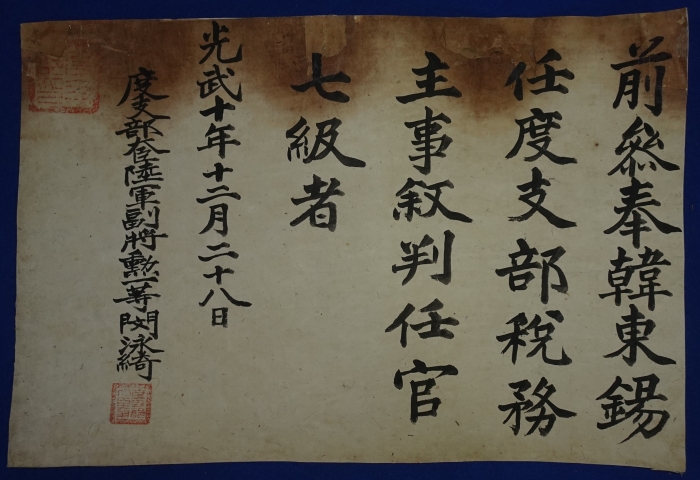 前叅奉韓東錫
任度支部稅務
主事敍判任官
七級者
光武十年十二月二十八日
度支部大臣陸軍副將勳一等閔泳綺